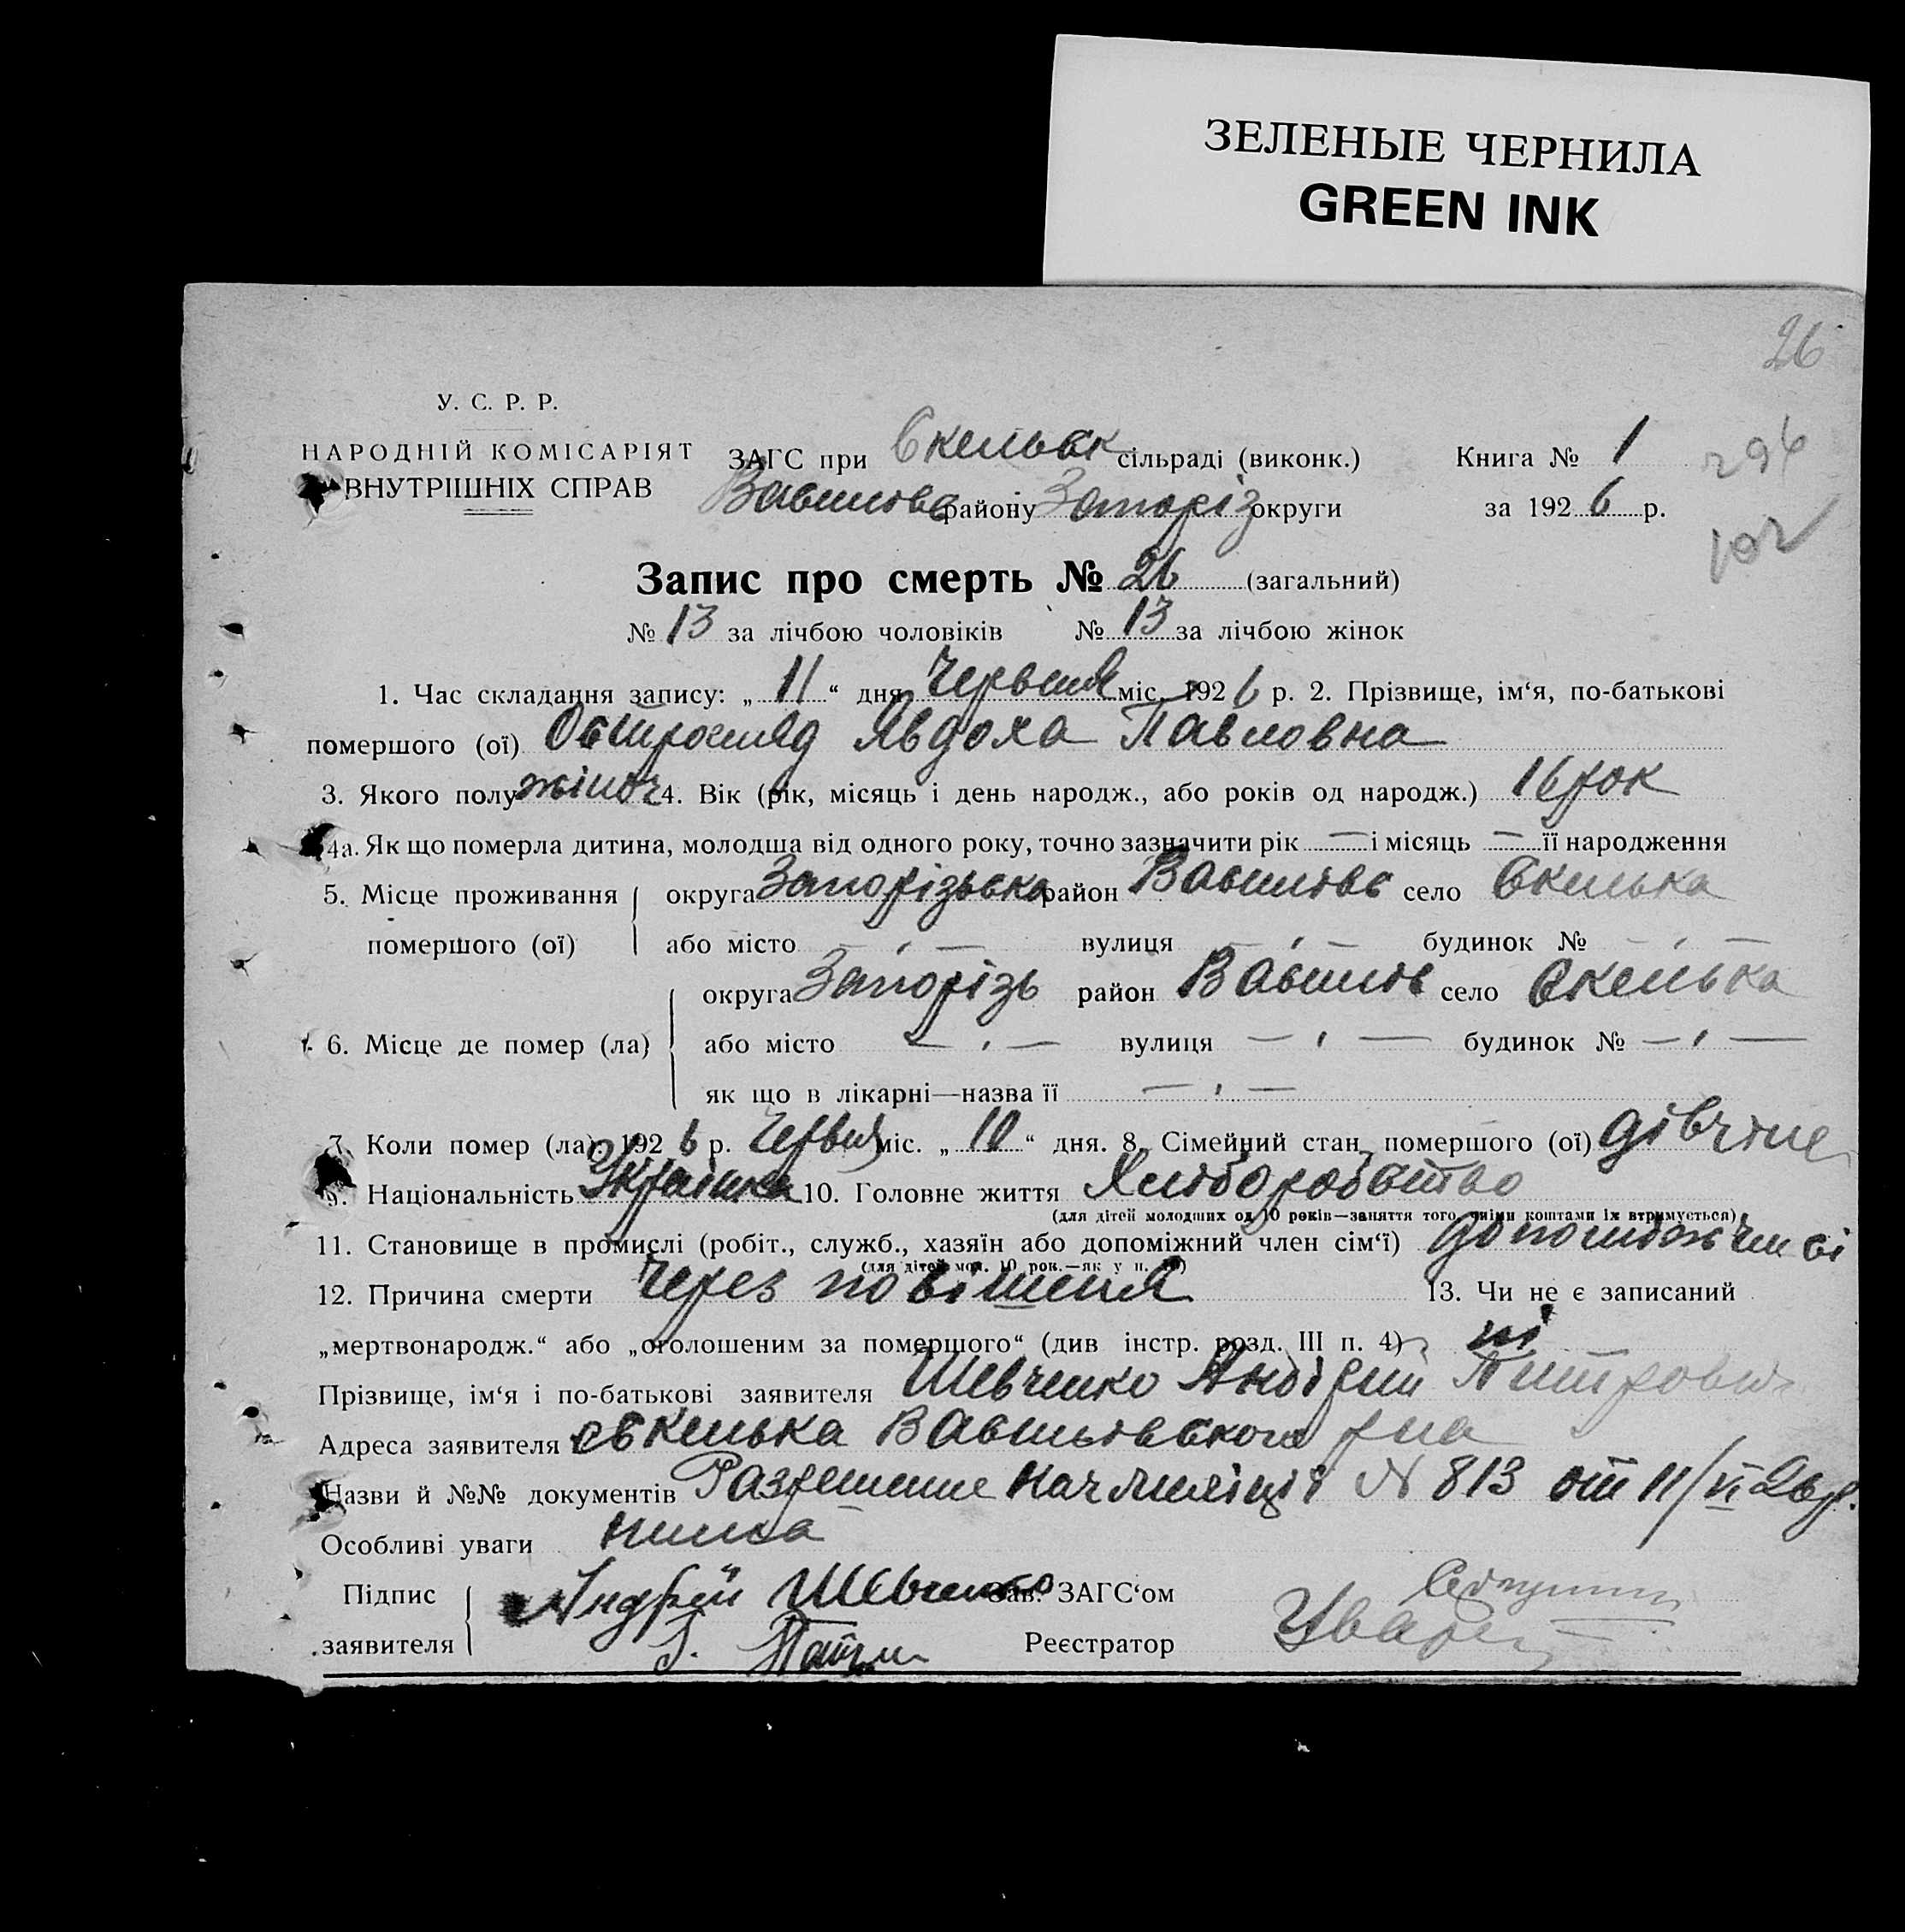 ЗЕЛЕНЫЕ ЧЕРНИЛА
GREEN INK
26
У. С. Р. Р.
НАРОДНІЙ КОМІСАРІЯТ
ВНУТРІШНІХ СПРАВ
ЗАГС при Скельськ сільраді (виконк.)
Книга № 1
296
району Запоріз округи
за 1926 р.
102
Запис про смерть № 26 (загальний)
№ 13 за лічбою чоловіків № 13 за лічбою жінок
1. Час складання запису: „ 11 “ дня Червеня міс. 1926 р. 2. Прізвище, ім‘я, по-батькові
помершого (ої) Явдоха Павловна
3. Якого полу жіноч 4. Вік (рік, місяць і день народж., або років од народж.) 16 рок
4а. Як що померла дитина, молодша від одного року, точно зазначити рік — і місяць — її народження
5. Місце проживання округа Запорізська район село Скелька
помершого (ої) або місто — , — вулиця — , — будинок № — , —
округа Запорізь район село Скелька
6. Місце де помер (ла) або місто — , — вулиця — , — будинок № — , —
як що в лікарні—назва її — , —
7. Коли помер (ла): 1926 р. Червня міс. „ 10 “ дня. 8. Сімейний стан помершого (ої)
9. Національність Українка 10. Головне життя Хліборобство
(для дітей молодших од 10 років—заняття того, чиїми коштами їх втримується)
11. Становище в промислі (робіт., служб., хазяїн або допоміжний член сім‘ї)
(для дітей мол. 10 рок.—як у п. 10)
12. Причина смерти Через повішеня 13. Чи не є записаний
„мертвонародж.“ або „оголошеним за помершого“ (див інстр. розд. III п. 4) ні
Прізвище, ім‘я і по-батькові заявителя Шевченко Андрій
Адреса заявителя Скелька
Назви й №№ документів Разрешение Нач милиції N 813 от 11/VI 26 р.
Особливі уваги нима
Підпис
заявителя
Андрій Шевченко
Зав. ЗАГС‘ом
Реєстратор